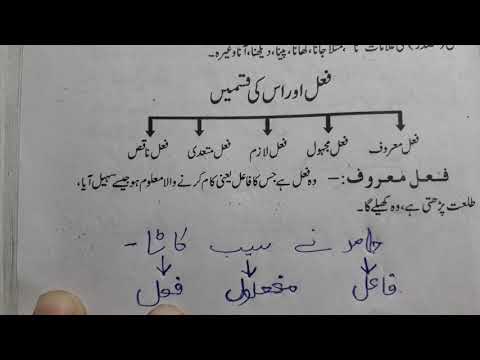 علامات " نا " ہے، مثلاً جانا، کھانا، پینا، دیکھنا، آنا وغیرہ۔
فعل اور اس کی قسمیں
فعل معروف فعل مجہول فعل لازم فعل متعدی فعل ناقص
فعل معروف:- وہ فعل ہے جس کا فاعل یعنی کام کرنے والا معلوم ہو جیسے سہیل آیا،
طلعت پڑھتی ہے، وہ کھیلے گا۔
حامد نے سیب کاٹا -
فاعل مفعول فعل